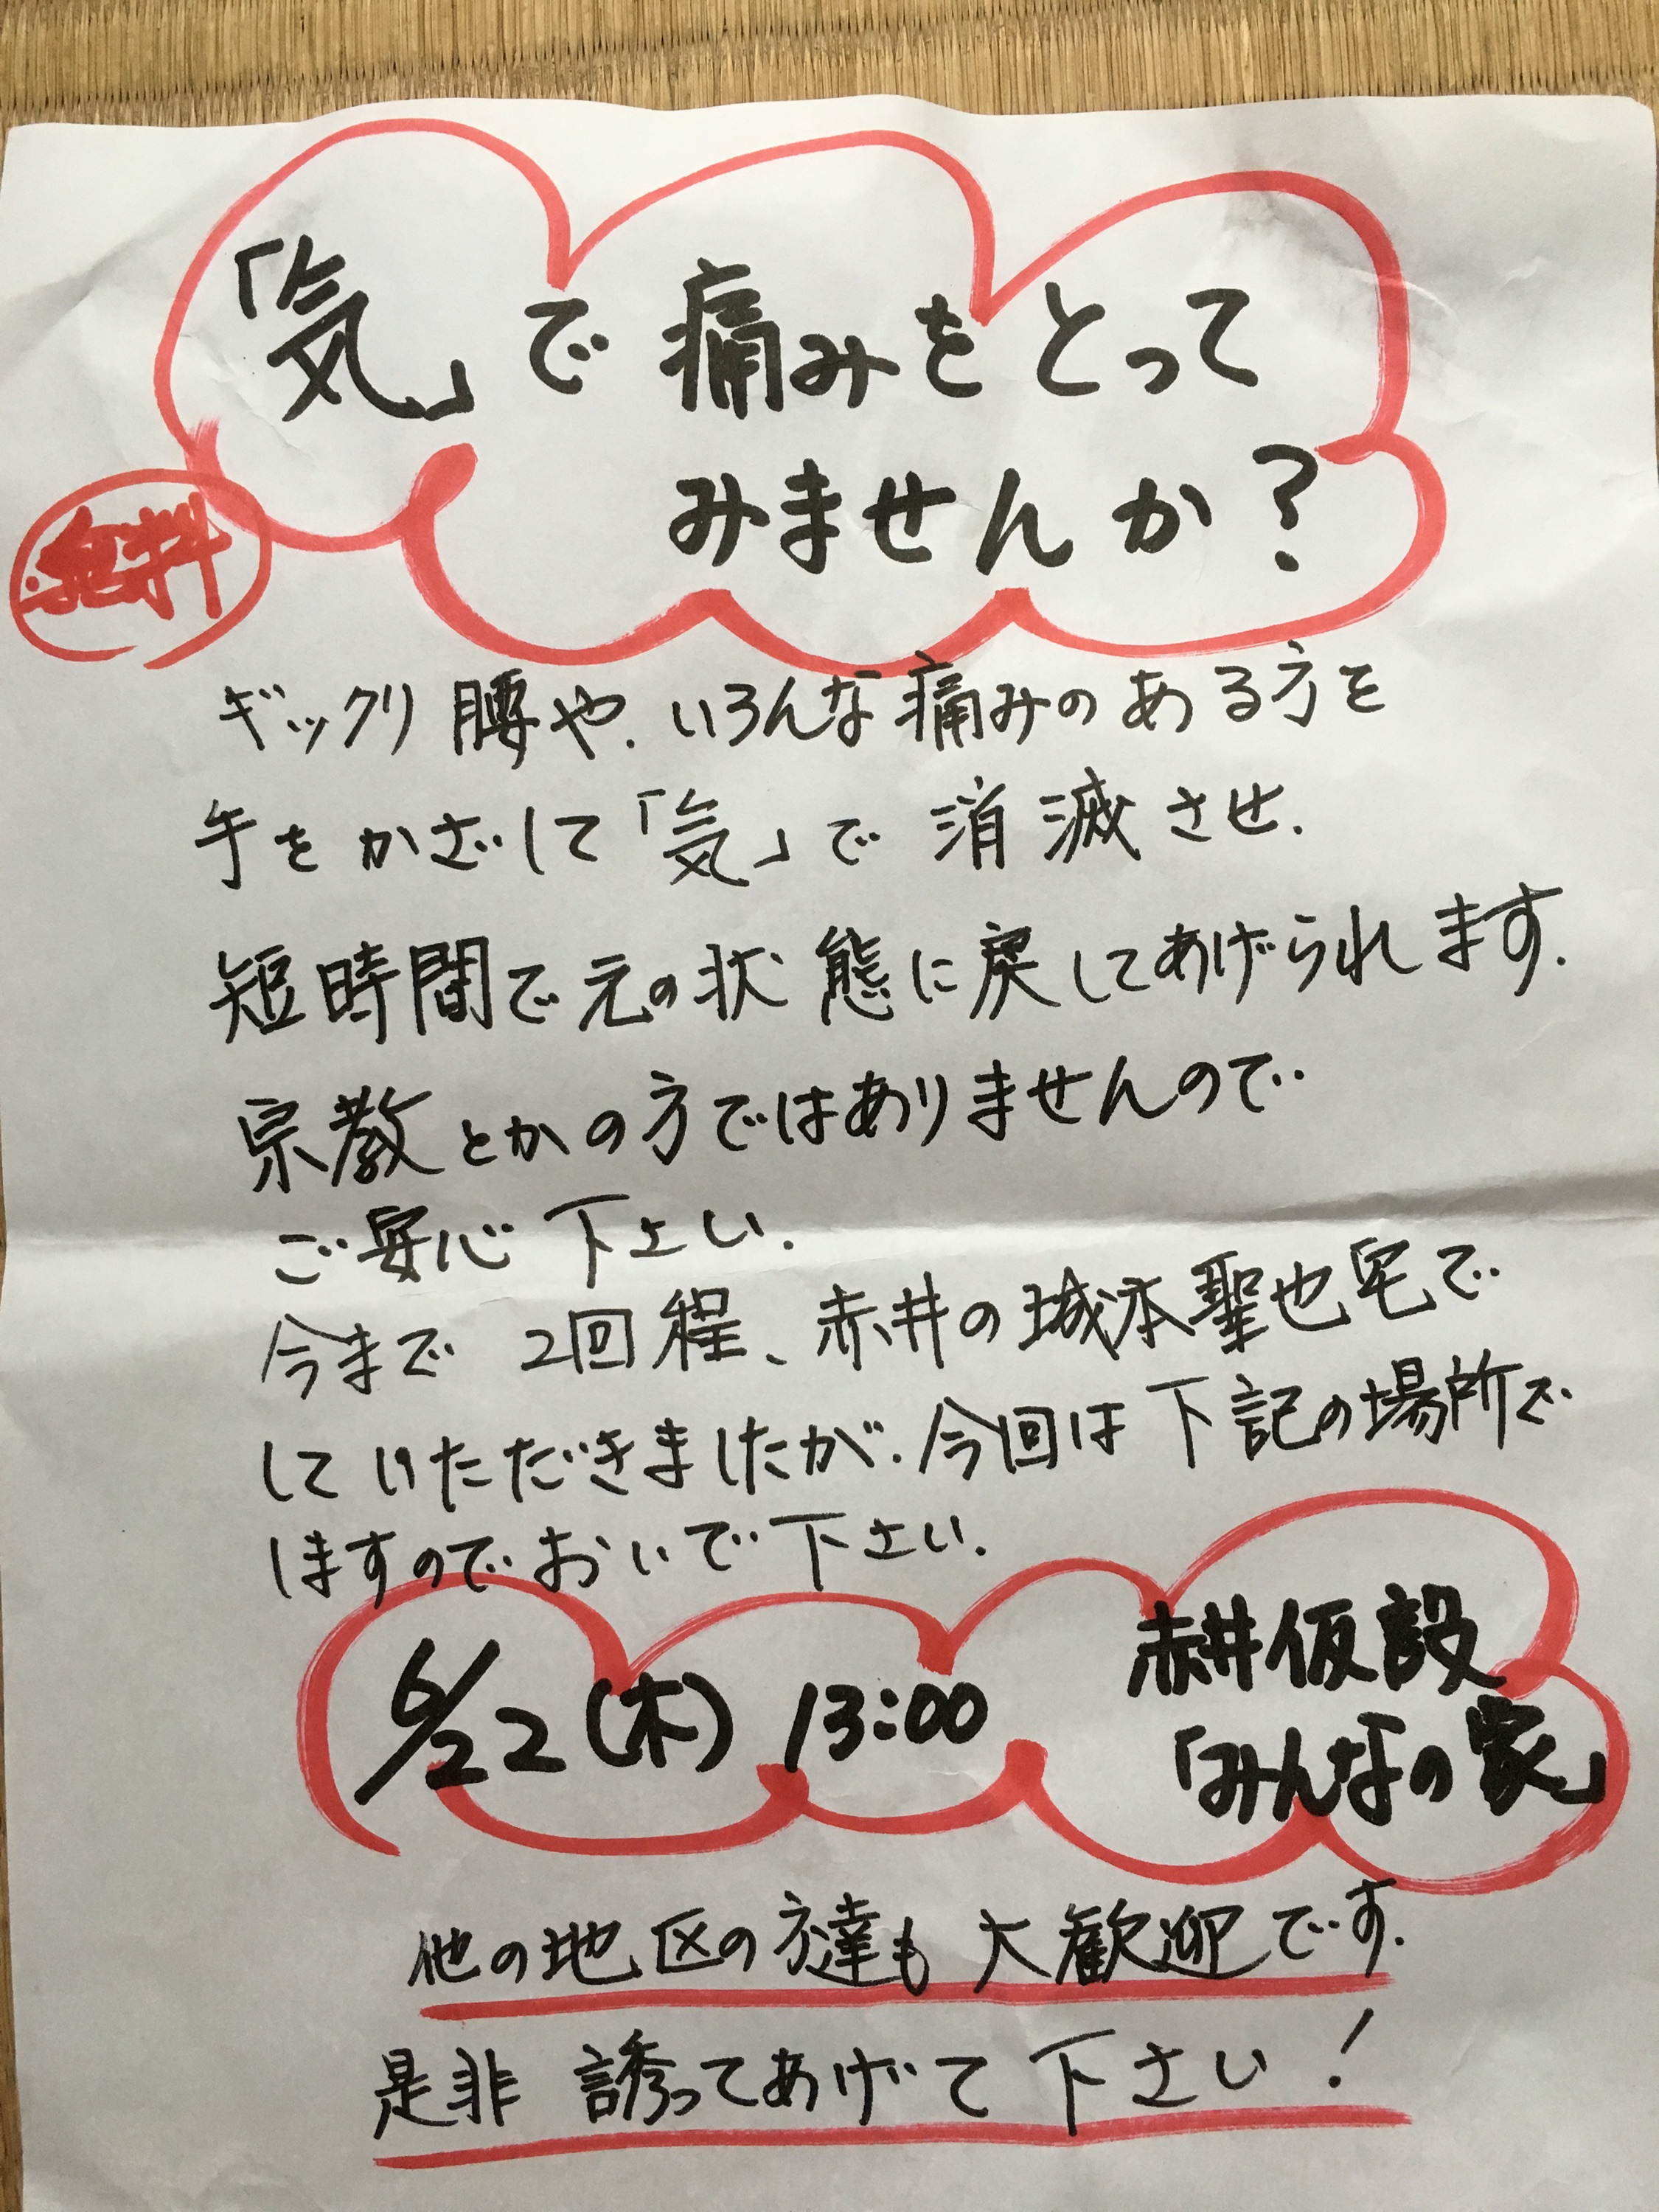 「気」で痛みをとって
みませんか?
無料
ギックリ腰や、いろんな痛みのある方を
手をかざして「気」で消滅させ、
短時間で元の状態に戻してあげられます。
宗教とかの方ではありませんので
ご安心下さい。
今まで2回程、赤井の城本聖也宅で
していただきましたが、今回は下記の場所で
しますのでおいで下さい。
6/22(木) 13:00
赤井仮設
「みんなの家」
他の地区の方達も大歓迎です。
是非誘ってあげて下さい!